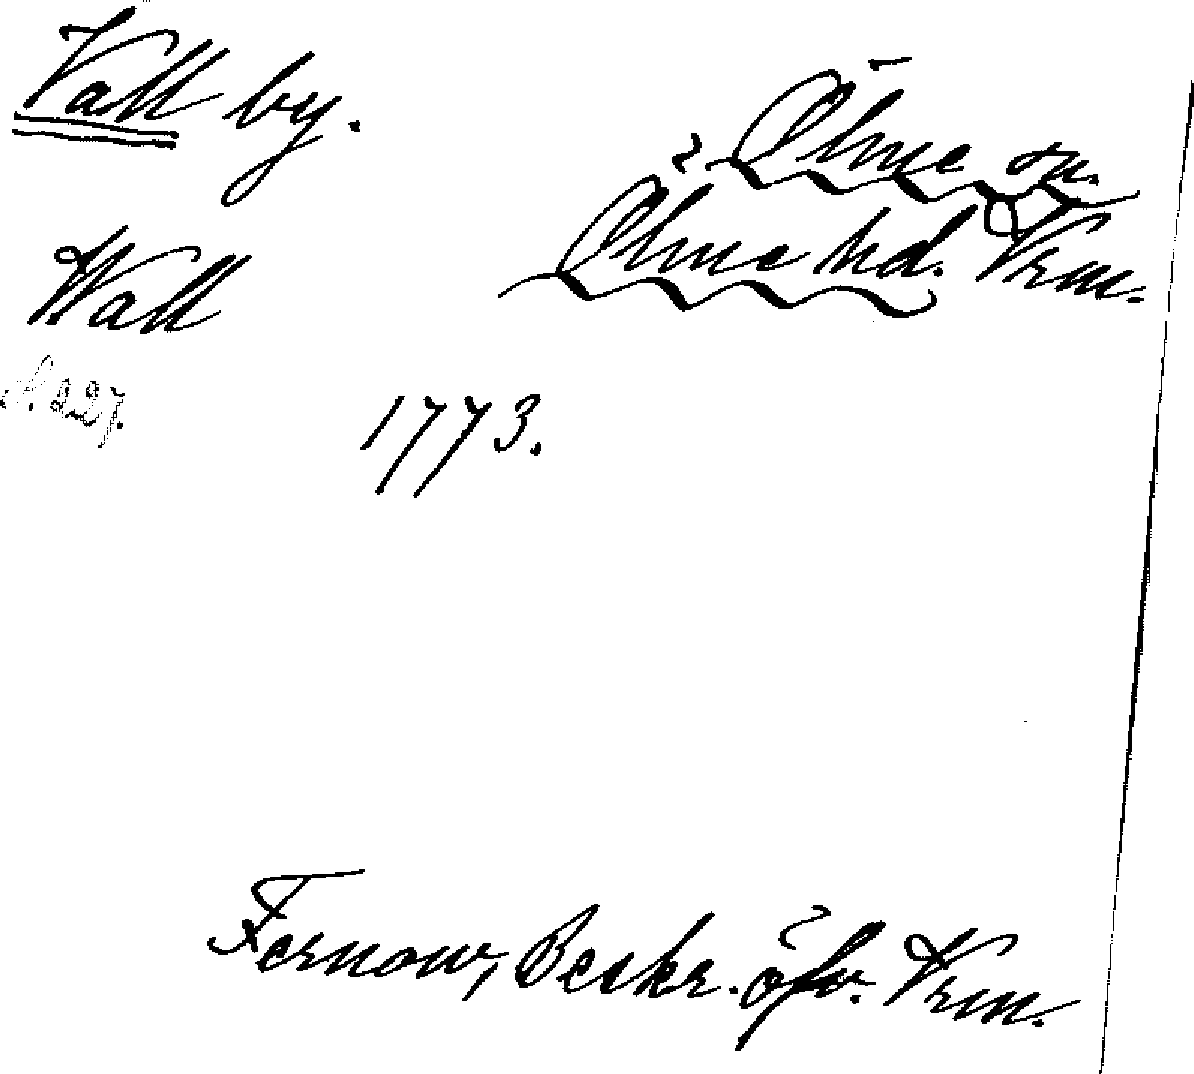 Vall by.
Ölme sn.
Ölme hd. Vrm.
Wall
s. 227.
1773.
Fernow, Beskr. öfv. Vrm.